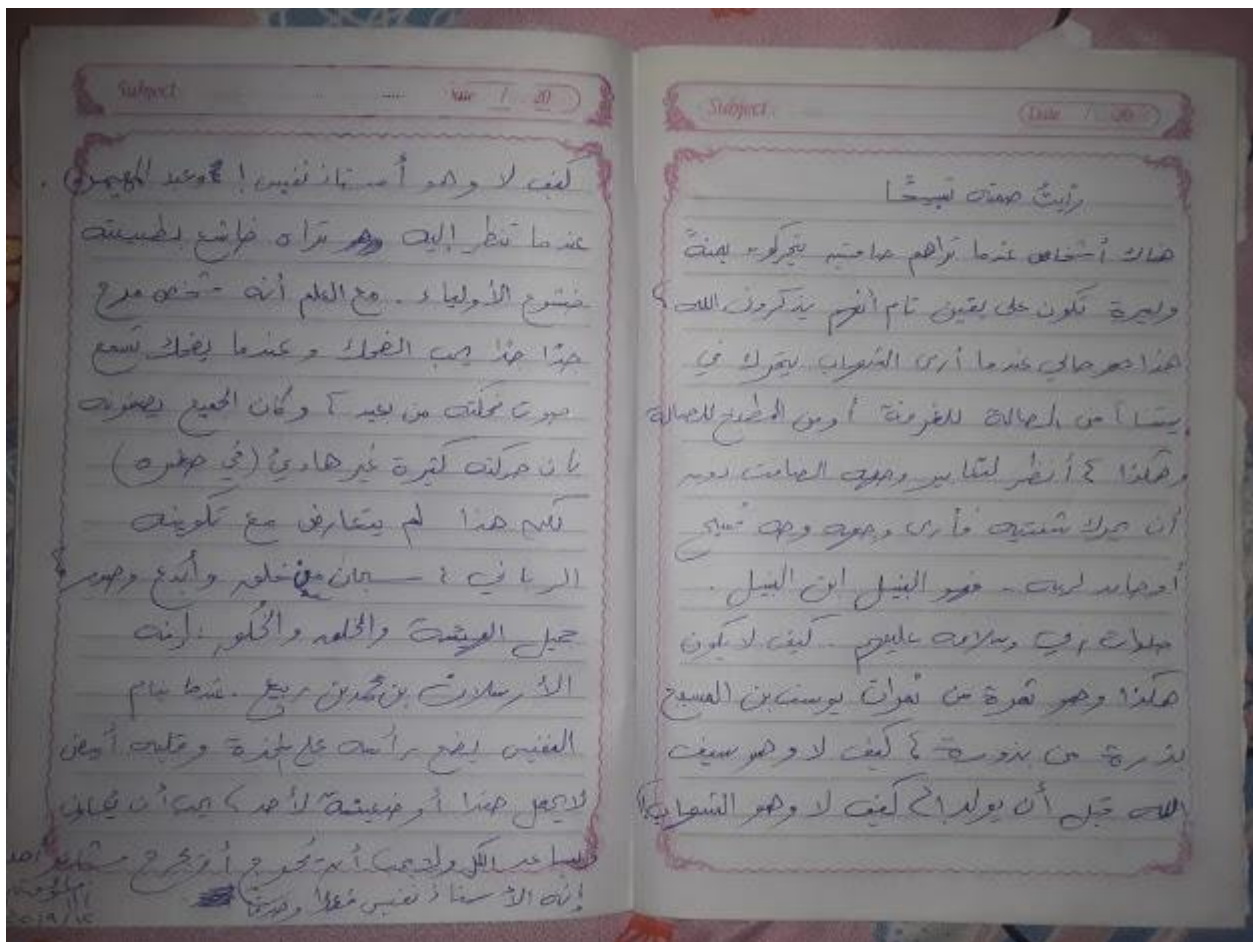 Subject:
Date / 20
رأيتُ صمته تسبيحًا
هناك أشخاص عندما تراهم صامتين يتحركون يمنةً
ويسرة تكون على يقين تام أنهم يذكرون الله ؟
هذا هو حالي عندما أرى الشهاب يتحرك في
بيتنا من الصالة للغرفة أو من المطبخ للصالة
وهكذا ؟ أنظر لتعابير وجهه الصامت دون
أن يحرك شفتيه فأرى وجهه وجه تسبيح
أو حامد لربه .. فهو النبيل ابن النبيل .
صلوات ربي وسلامه عليهم .. كيف لا يكون
هكذا وهو ثمرة من ثمرات يوسف بن المسيح
بذرة من بذوره ؟ كيف لا وهو سيف
الله قبل أن يولد !؟ كيف لا وهو الشهاب !
Subject:
Date / 20
كيف لا وهو أستاذ نفيس ! وعبد المهيمن .
عندما تنظر إليه تراه خاشع بطبيعته
خشوع الأولياء . مع العلم أنه شخص مرح
جدًا جدًا يحب الضحك وعندما يضحك تسمع
صوت ضحكته من بعيد ؟ وكان الجميع يصفونه
بأن حركته كثيرة غير هادئ (في صغره)
لكن هذا لم يتعارض مع تكوينه
الرباني ؟ سبحان من خلق وأبدع وصور
جميل الهيئة والخلق والخُلُق . إنه
الأرسلان بن محمد بن ربيع . عندما ينام
النفيس يضع رأسه على المخدة وقلبه أبيض
لا يحمل حقدًا أو ضغينة لأحد ؟ يحب أن يعاون
ويساعد الكل ولا يحب أن يُحرج أو يجرح مشاعر أحد
إنه الأستاذ نفيس فعلًا وصدقًا